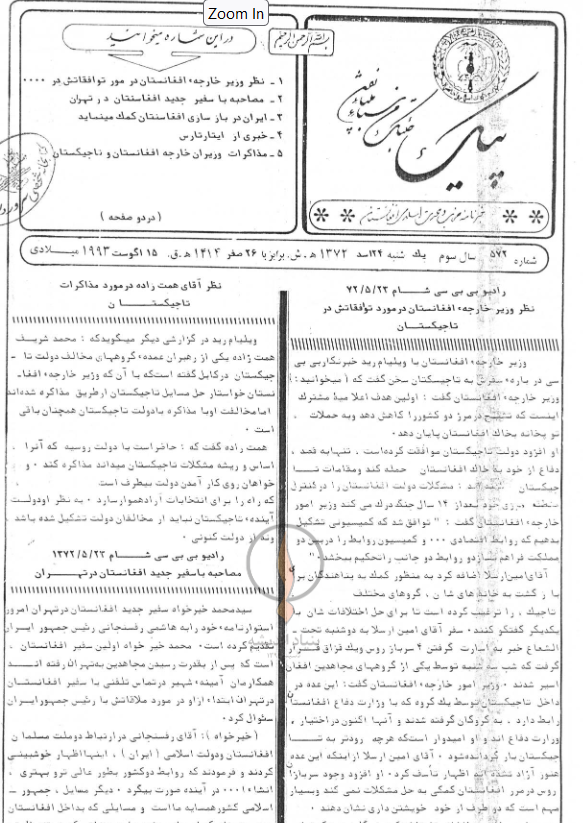 Zoom In
بسم الله الرحمن الرحیم
در این شماره میخوانید
۱ - نظر وزیر خارجهء افغانستان در مور توافقاتش در ۰۰۰۰
۲ - مصاحبه با سفیر جدید افغانستان در تهران
۳ - ایران در باز سازی افغانستان کمک مینماید
۴ - خبری از ایتارتاس
۵ - مذاکرات وزیران خارجه افغانستان و تاجیکستان
( در دو صفحه )
پیک
شماره ۵۷۲ سال سوم یک شنبه ۲۴ اسد ۱۳۷۲ ه.ش. برابر با ۲۶ صفر ۱۴۱۴ ه.ق. ۱۵ اگوست ۱۹۹۳ میلادی
رادیو بی بی سی شام ۷۲/۵/۲۳
نظر وزیر خارجهء افغانستان در مورد توافقاتش در
تاجیکستان
وزیر خارجهء افغانستان با ویلیام رید خبرنگار بی بی
سی در بارهء سفرش به تاجیکستان سخن گفت که ( میخوانید : )
وزیر خارجهء افغانستان گفت : اولین هدف اعلامیهء مشترک
اینست که تشنج در مرز دو کشور را کاهش دهد و به حملات
توپخانه بخاک افغانستان پایان دهد ۰
او افزود دولت تاجیکستان موافقت کرده است ، نتنها به قصد
دفاع از خود به خاک افغانستان حمله کند و مقامات تا
جیکستان گفته اند : مشکلات دولت افغانستان را در کنترل
منطقه مرزی خود بعد از ۱۴ سال جنگ درک می کند وزیر امور
خارجهء افغانستان گفت : " توافق شد که کمیسیونی تشکیل
بدهیم که روابط اقتصادی ۰۰۰ و کمیسیون روابط را در بین دو
مملکت فراهم سازد و روابط دو جانب را تحکیم ببخشد ۰ "
آقای امین ارسلا اضافه کرد به منظور کمک به پناهندگان برا
باز گشت به خانه های شان ، گروهای مختلف
تاجیک ، را ترغیب کرده است تا برای حل اختلافات شان با
یکدیگر گفتگو کنند ۰ سفر آقای امین ارسلا به دوشنبه تحت -
الشعاع خبر به اسارت گرفتن ۴ سرباز روس و یک قزاق قرار
گرفت که شب سه شنبه توسط یکی از گروههای مجاهدین افغان
اسیر شدند ۰ وزیر امور خارجهء افغانستان گفت : این عده در
داخل تاجیکستان توسط یک گروه که با وزارت دفاع افغانستا
رابطه دارد ، به گروگان گرفته شدند و آنها اکنون در اختیار
وزارت دفاع اند و او امیدوار است که هر چه زودتر به تا
جیکستان باز گردانده شود ۰ آقای امین ارسلا از اینکه این عده
هنوز آزاد نشده اند اظهار تأسف کرد ۰ او افزود وجود سربازان
روس در مرز افغانستان کمکی به حل مشکلات نمی کند و بسیار
مهم است که دو طرف از خود خویشتن داری نشان دهند ۰
نظر آقای همت زاده در مورد مذاکرات
تاجیکستان
ویلیام رید در گزارشی دیگر میگوید که : محمد شریف
همت زاده یکی از رهبران عمدهء گروههای مخالف دولت تا -
جیکستان در کابل گفته است که با آن که وزیر خارجهء افغا-
نستان خواستار حل مسایل تاجیکستان از طریق مذاکره شده اند
اما مخالفت او با مذاکره با دولت تاجیکستان همچنان باقی
است ۰
همت زاده گفت که : حاضر است با دولت روسیه که آنرا
اساس و ریشه مشکلات تاجیکستان میداند مذاکره کند ۰ و
خواهان روی کار آمدن دولت بیطرف است
که راه را برای انتخابات آزاد هموار سازد ۰ به نظر او دولت
آیندهء تاجیکستان نباید از مخالفان دولت تشکیل شده باشد
ونه از دولت کنونی ۰
رادیو بی بی سی شام ۱۳۷۲/۵/۲۳
مصاحبه با سفیر جدید افغانستان در تهران
سید محمد خیرخواه سفیر جدید افغانستان در تهران امروز
استوارنامهء خود را به هاشمی رفسنجانی رئیس جمهور ایران
تقدیم کرده است ۰ محمد خیر خواه اولین سفیر افغانستان
است که پس از بقدرت رسیدن مجاهدین به تهران رفته اند
همکار مان آمینه شهیر در تماس تلفنی با سفیر افغانستان
در تهران ابتداء از او در مورد ملاقاتش با رئیس جمهور ایران
سئوال کرد ۰
( خیرخواه ) : آقای رفسنجانی در ارتباط دو ملت مسلمان
افغانستان و دولت اسلامی ( ایران ) ، اینها اظهار خوشبینی
کردند و فرمودند که روابط دو کشور بطور عالی تر و بهتری ،
انشاءا ۰۰۰ در آینده صورت بیگرد ۰ دیگر مسایل ، جمهور -
اسلامی کشور همسایه ما است و مسایلی که بداخل افغانستان